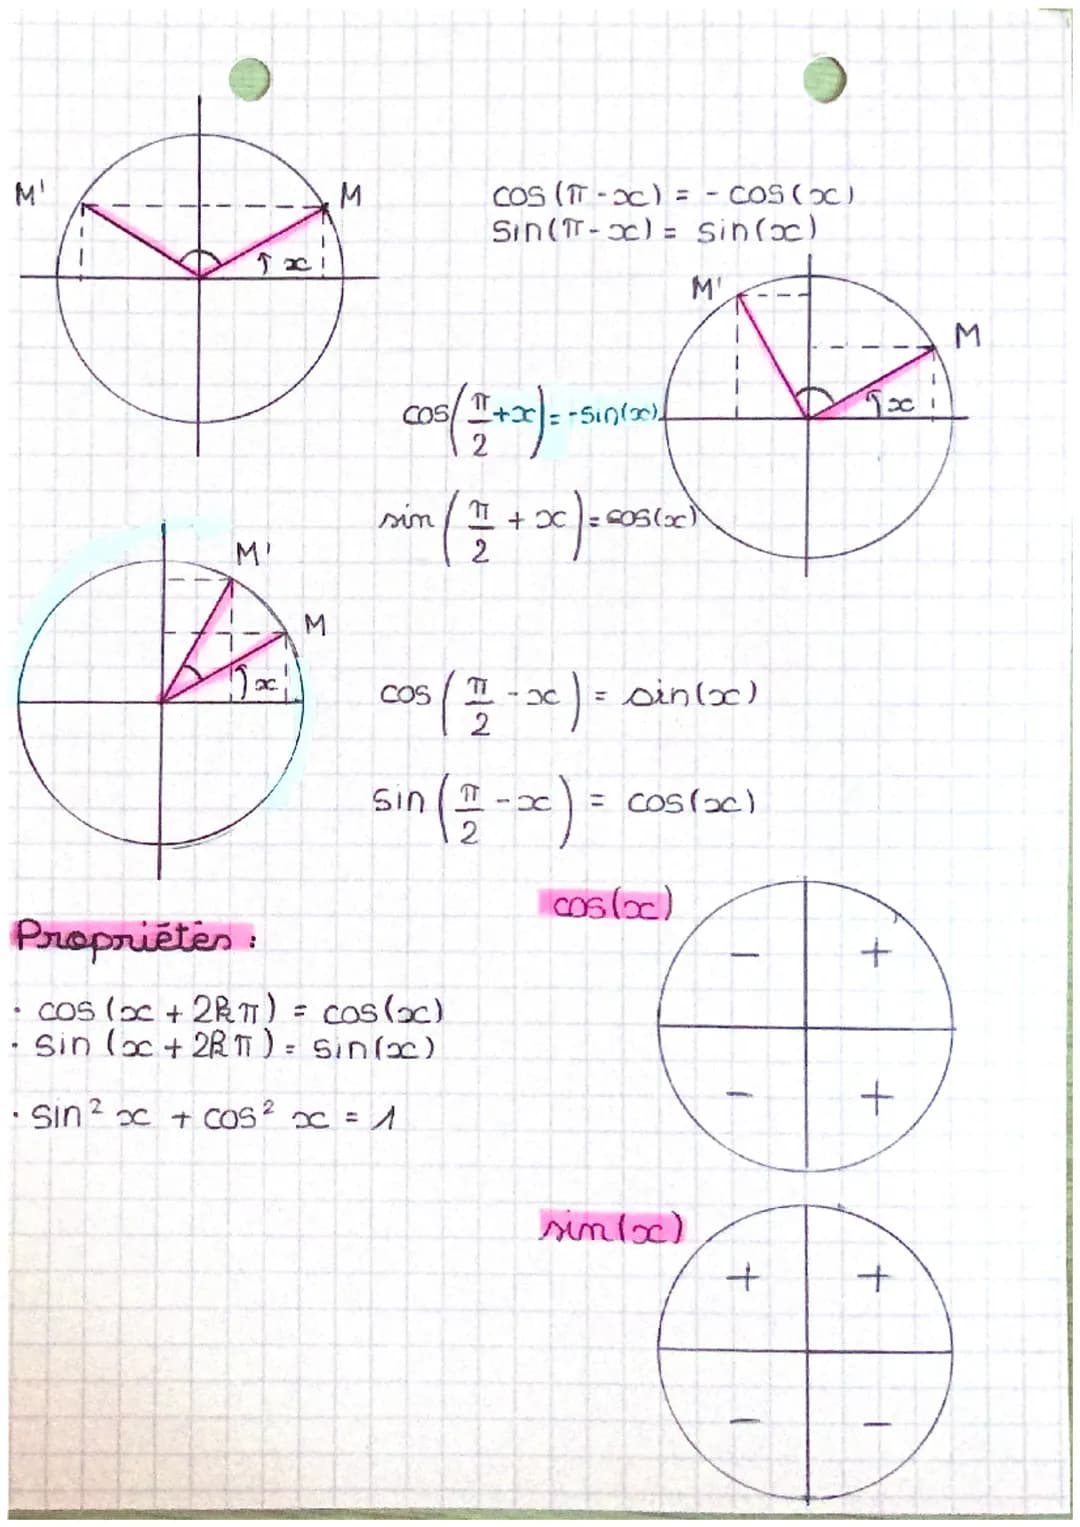 M'
M
x
cos(π-x) = - cos(x)
sin(π-x) = sin(x)
M'
M
x
cos(π/2+x)=-sin(x)
sin(π/2 + x)=cos(x)
M'
M
x
cos(π/2 -x) = sin(x)
sin(π/2 -x) = cos(x)
cos(x)
- +
- +
Propriétés :
· cos (x + 2kπ) = cos(x)
· sin (x + 2kπ) = sin(x)
· sin² x + cos² x = 1
sin(x)
+ +
- -